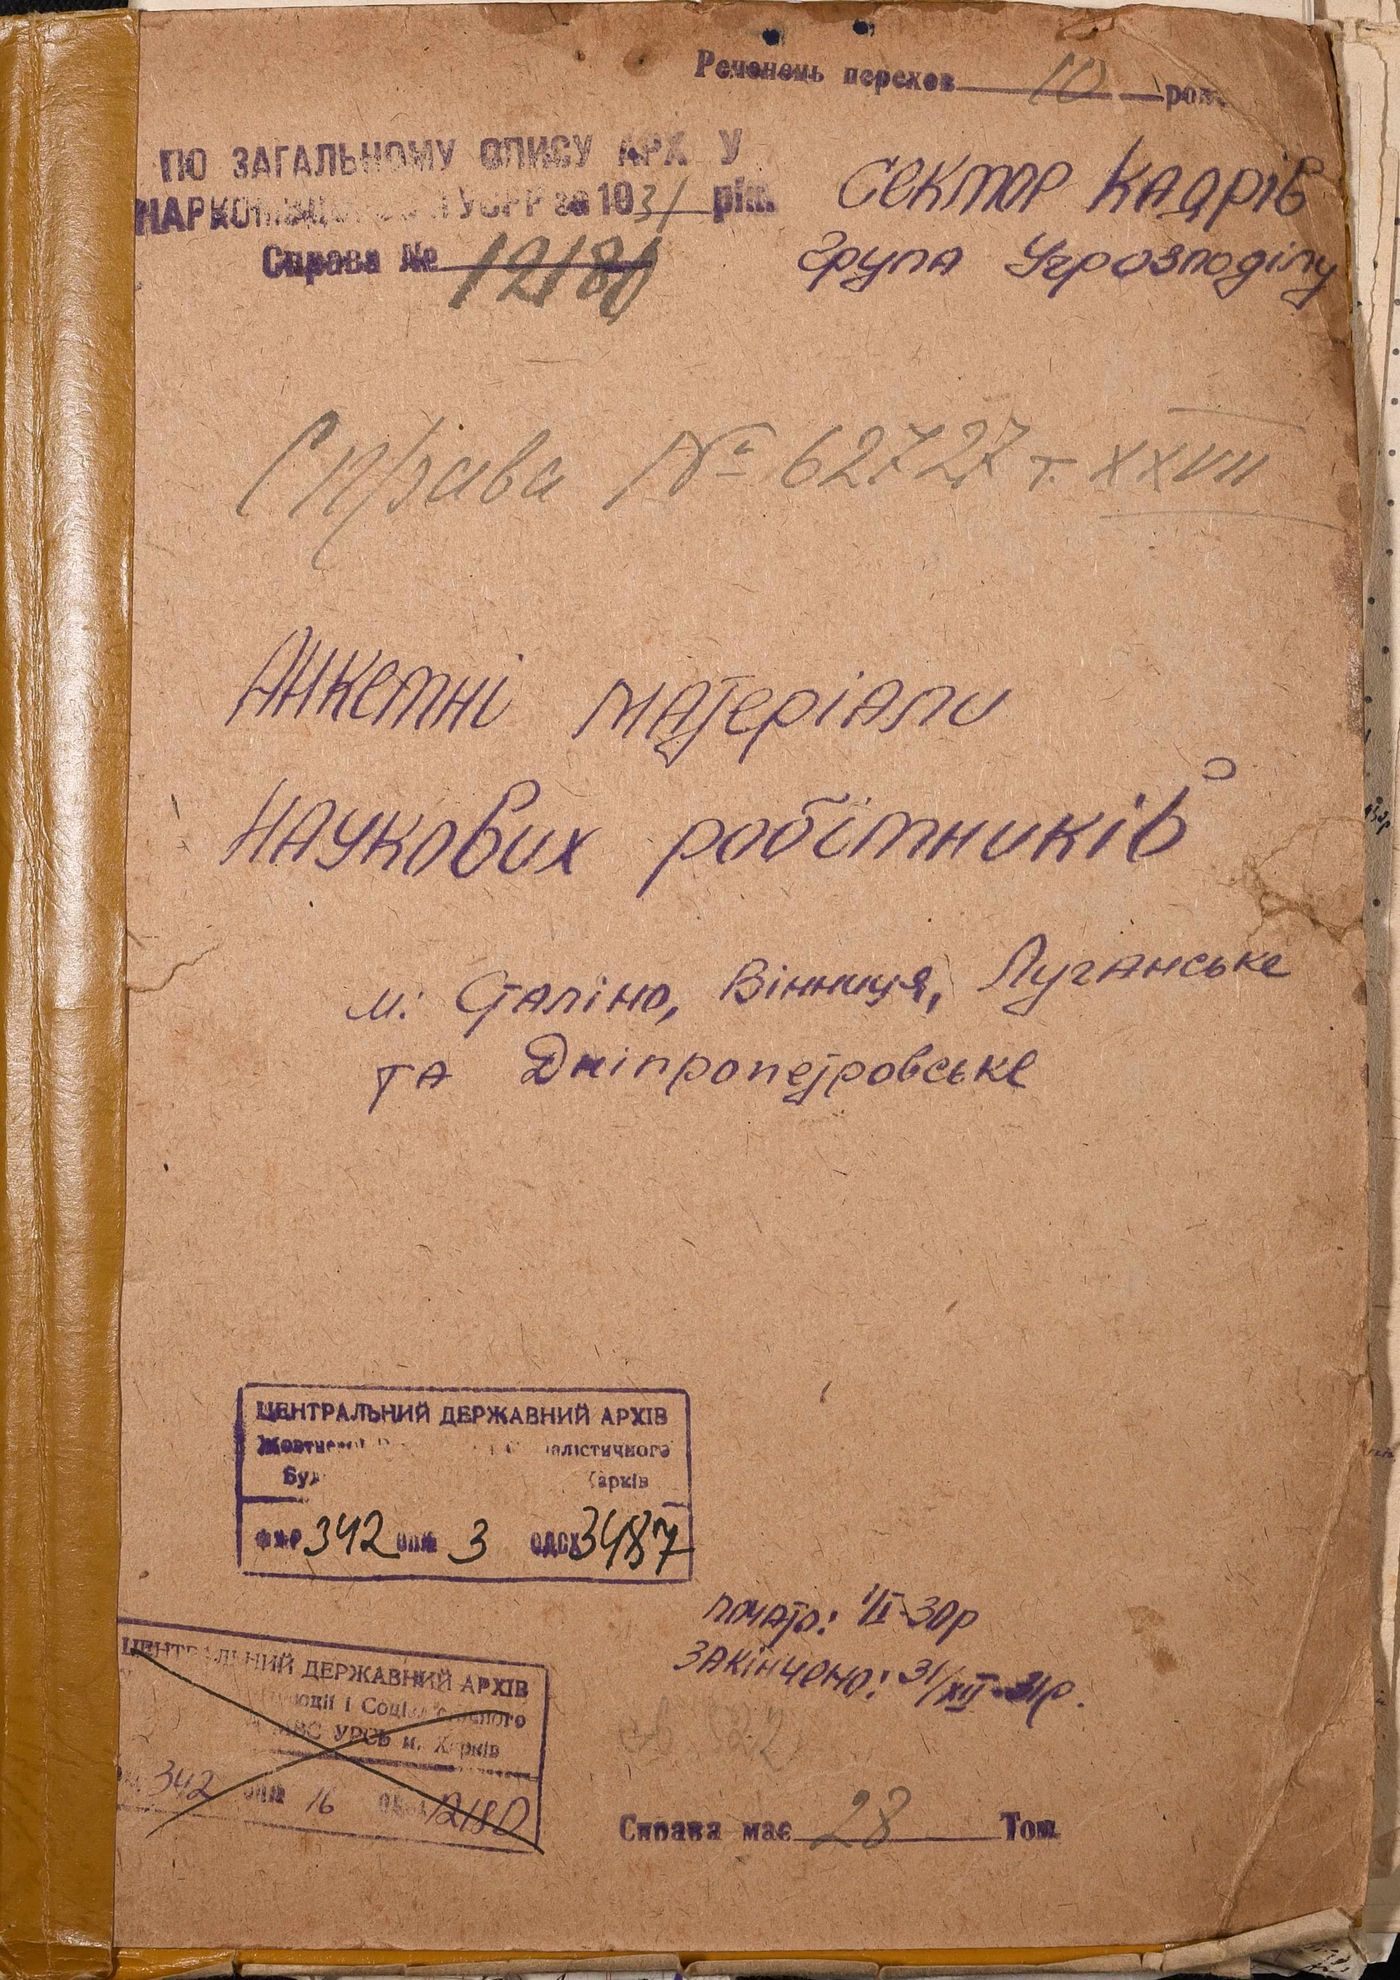 Реченець перехов 10 рок.
ПО ЗАГАЛЬНОМУ ОПИСУ АРХ У
УСРР за 1931 рік.
Справа № 12180
Сектор Кадрів
Група Угрозподілу
Справа № 62727 т. XXVII
Анкетні матеріали
наукових робітників
м: Сталіно, Вінниця, Луганське
та Дніпропетровське
ЦЕНТРАЛЬНИЙ ДЕРЖАВНИЙ АРХІВ
алістичного
Буд арків
ФОНД 342 опис 3 ОДСХ 3487
почато: 1/I-30р
закінчено: 31/XII-31р.
ЦЕНТРАЛЬНИЙ ДЕРЖАВНИЙ АРХІВ
люції і Соціалістичного
МВС УРСР м. Харків
342 опис 16 12180
Справа має 28 Том